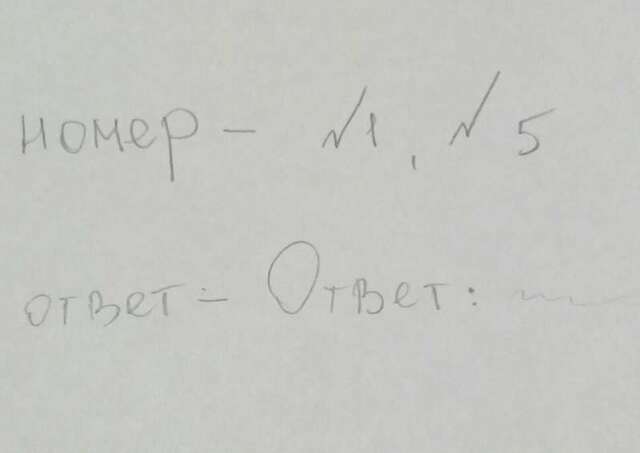 номер - №1, №5
ответ - Ответ: